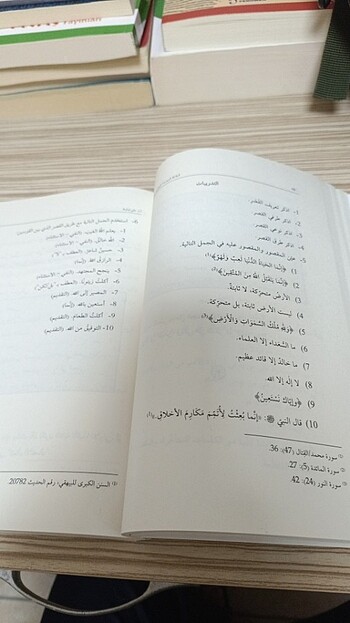 التدريبات
1- اذكر تعريف القصر.
2- اذكر طرفي القصر.
3- اذكر نوعي القصر.
4- اذكر طرق القصر.
5- عين المقصور والمقصور عليه في الجمل التالية.
1) ﴿إِنَّمَا الحَيَاةُ الدُّنْيَا لَعِبٌ وَلَهْوٌ﴾(1)
2) ﴿إِنَّمَا يَتَقَبَّلُ اللهُ مِنَ المُتَّقِينَ﴾(2)
3) الأرضُ متحركة، لا ثابتة.
4) ليست الأرض ثابتة، بل متحركة.
5) ﴿وَلِلَّهِ مُلْكُ السَّمَوَاتِ وَالْأَرْضِ﴾(3)
6) ما الشعراء إلا العلماء.
7) ما خالدٌ إلا قائد عظيم.
8) لا إله إلا الله.
9) ﴿وَإِيَّاكَ نَسْتَعِينُ﴾
10) قال النبيّ ﷺ: «إِنَّمَا بُعِثْتُ لِأُتَمِّمَ مَكَارِمَ الأَخْلَاقِ.»(1)
(1) سورة محمد/القتال (47): 36.
(2) سورة المائدة (5): 27.
(3) سورة النور (24): 42.
6- استخدم الجمل التالية مع طريق القصر الذي بين القوسين.
1- يعلم الله الغيب. (النفي - الاستثناء)
2- الله خالق. (النفي - الاستثناء)
3- حسين شاعر. (العطف بـ "لا")
4- الرازق الله. (إنما)
5- ينجح المجتهد. (النفي - الاستثناء)
6- أكلتُ زيتونة. (العطف بـ "بل/لكن")
7- المصير إلى الله. (التقديم)
8- أستعين بالله. (إنما)
9- أكلتُ الطعام. (التقديم)
10- التوفيق من الله. (التقديم)
(1) السنن الكبرى للبيهقي، رقم الحديث 20782